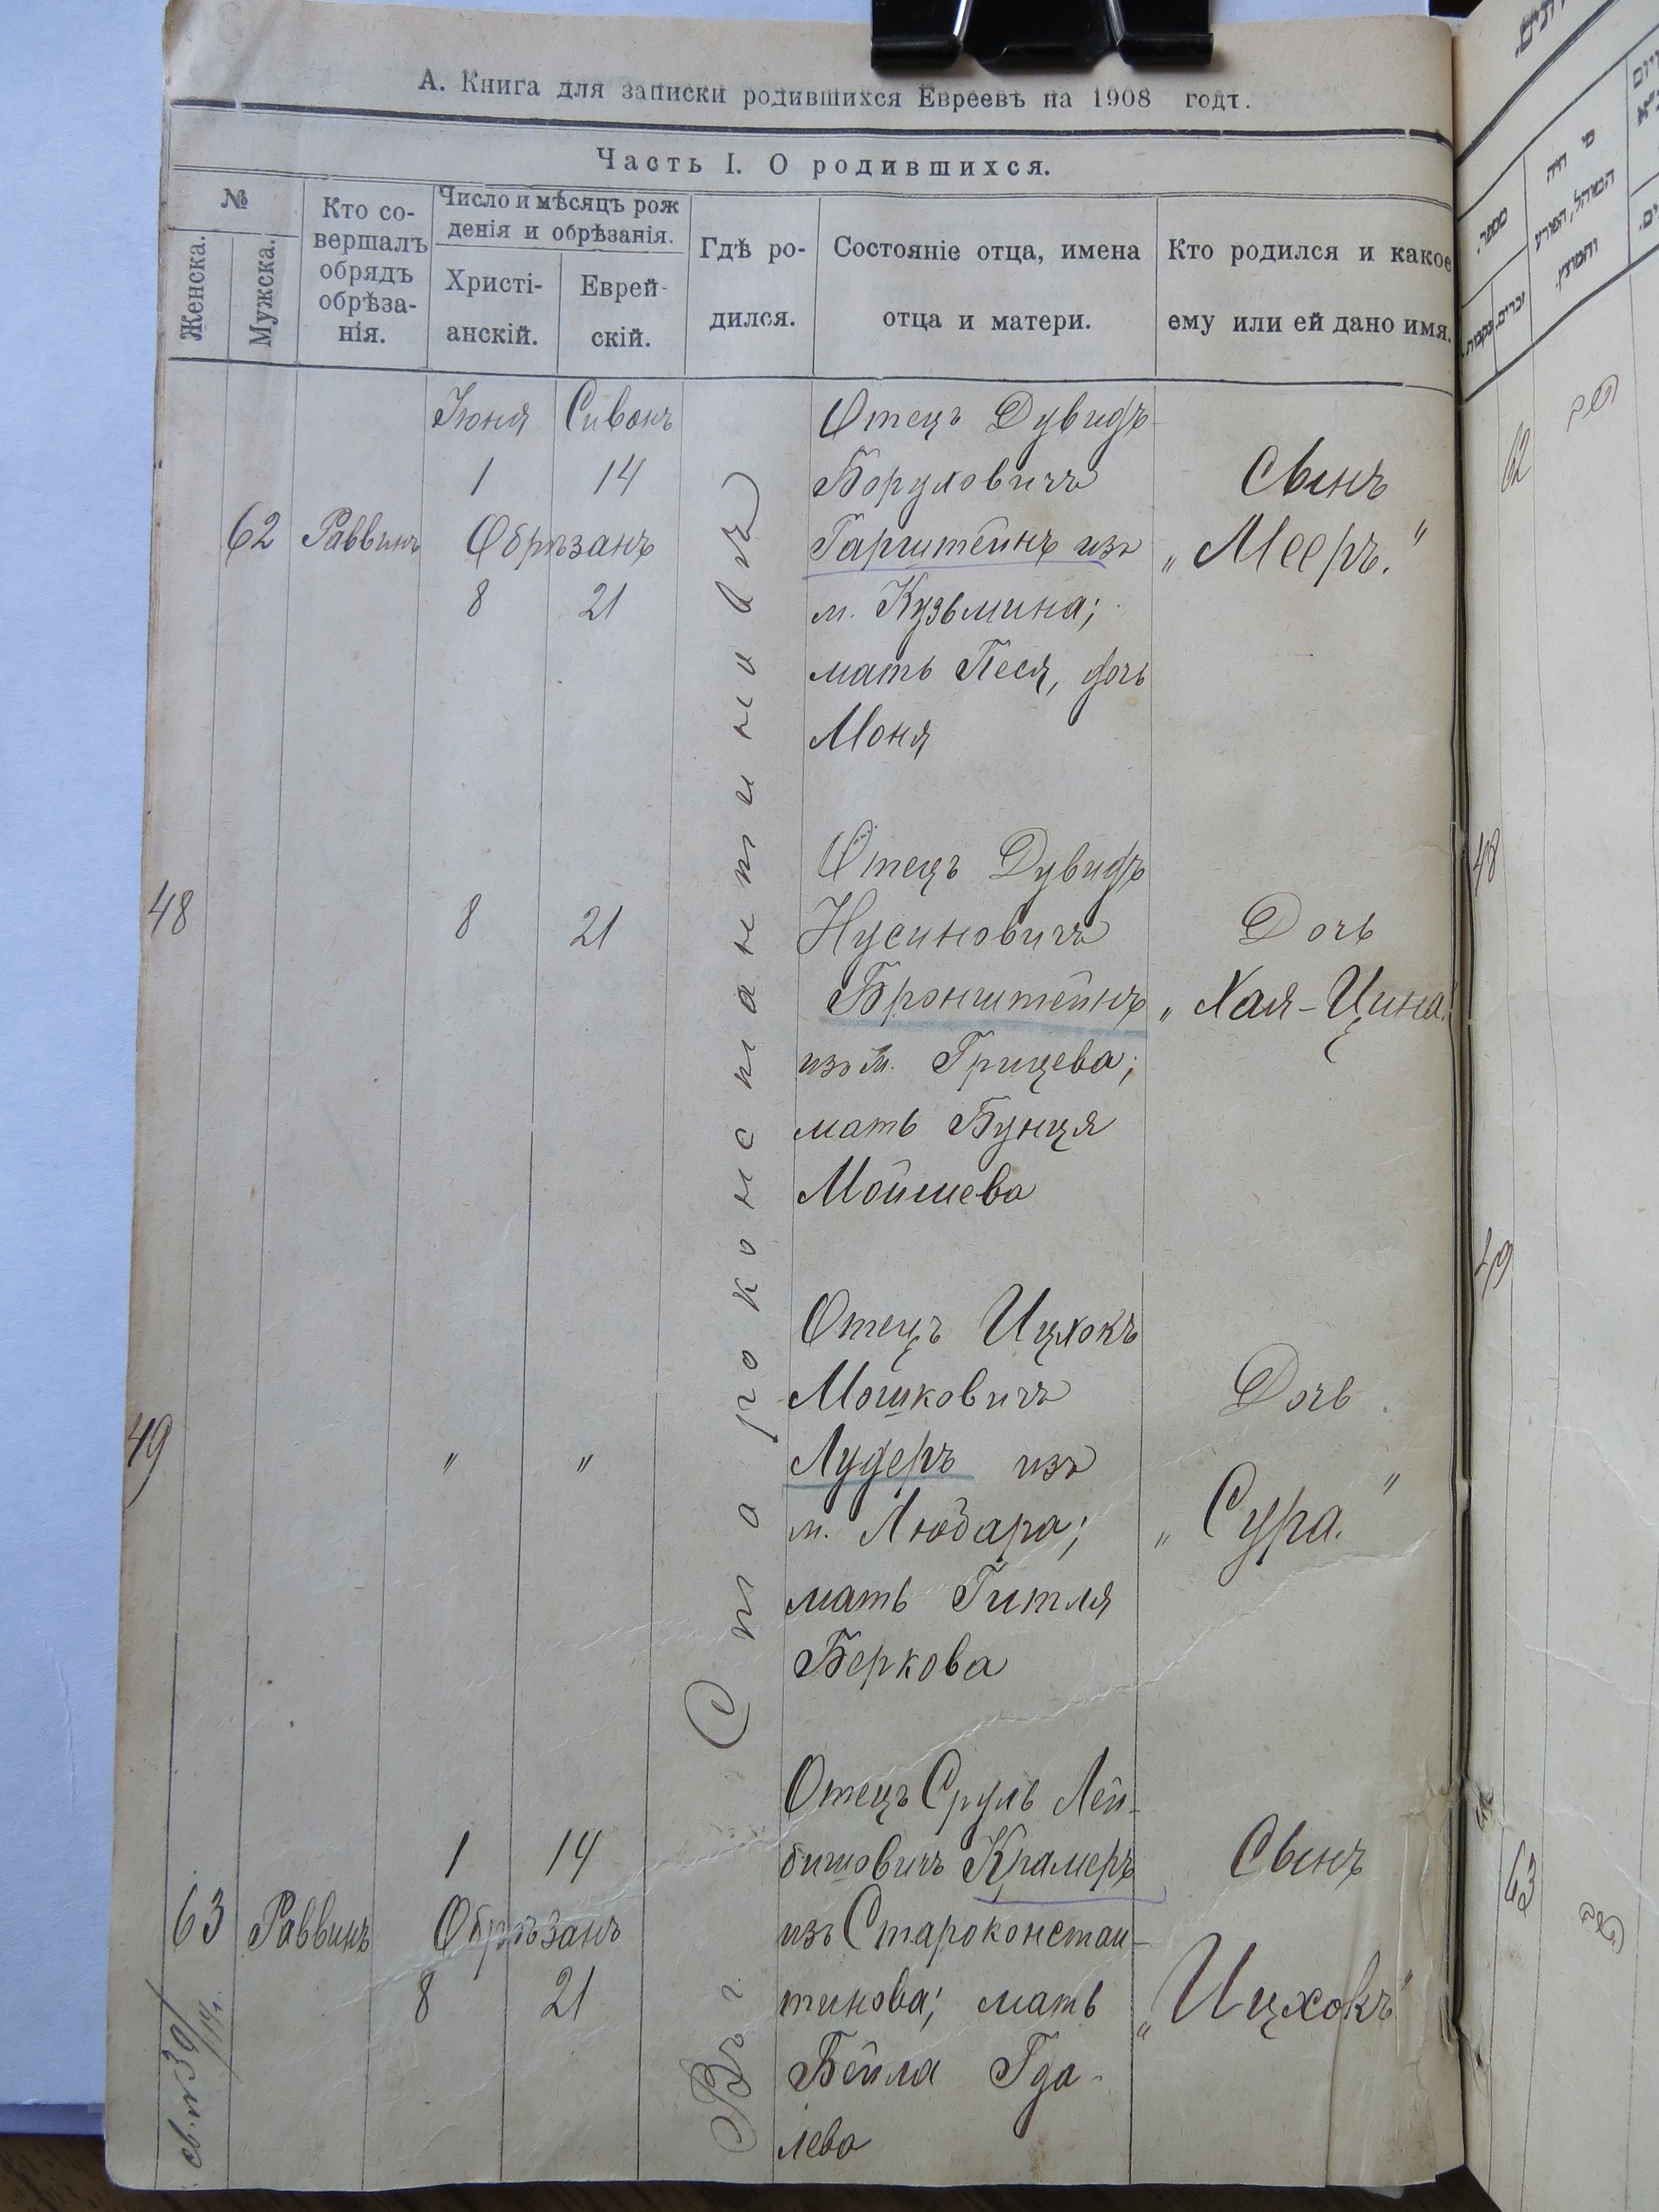 А. Книга для записки родившихся Евреевъ на 1908 годъ.
Часть I. О родившихся.
№
Женска.
Мужска.
Кто со-
вершалъ
обрядъ
обрѣза-
нія.
Число и мѣсяцъ рож
денія и обрѣзанія.
Христі-
анскій.
Еврей-
скій.
Гдѣ ро-
дился.
Состояніе отца, имена
отца и матери.
Кто родился и какое
ему или ей дано имя.
Въ г. Староконстантиновѣ
62
Раввинъ
Іюня Сивонъ
1 14
Обрѣзанъ
8 21
Отецъ Дувидъ
Боруховичъ
Гарштейнъ изъ
м. Кузьмина;
мать Песя, дочь
Моня
Сынъ
„Мееръ."
48
8 21
Отецъ Дувидъ
Нусиновичъ
Бронштейнъ
изъ м. Грицева;
мать Бунця
Мойшева
Дочь
„Хая-Цина."
49
" "
Отецъ Ицхокъ
Мошковичъ
Лудеръ изъ
м. Любара;
мать Гитля
Беркова
Дочь
„Сура."
63
Раввинъ
1 14
Обрѣзанъ
8 21
Отецъ Сруль Лей-
бишовичъ Крамеръ
изъ Староконстан-
тинова; мать
Бейла Гда-
лева
Сынъ
„Ицхокъ"
св. №39/14г.
מספר.
נקבות.
זכרים.
מי היה
המוהל, הפורע
והמוצץ.
62
48
49
63